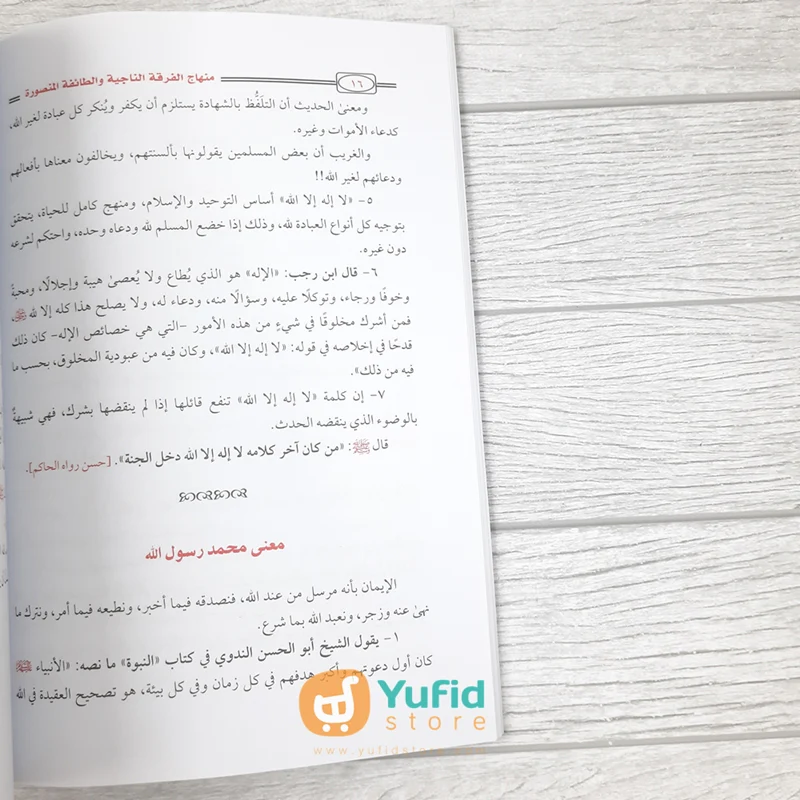 ١٦ منهاج الفرقة الناجية والطائفة المنصورة
ومعنى الحديث أن التلَفُّظ بالشهادة يستلزم أن يكفر ويُنكر كل عبادة لغير الله،
كدعاء الأموات وغيره.
والغريب أن بعض المسلمين يقولونها بألسنتهم، ويخالفون معناها بأفعالهم
ودعائهم لغير الله!!
٥- «لا إله إلا الله» أساس التوحيد والإسلام، ومنهج كامل للحياة، يتحقق
بتوجيه كل أنواع العبادة لله، وذلك إذا خضع المسلم لله ودعاه وحده، واحتكم لشرعه
دون غيره.
٦- قال ابن رجب: «الإله» هو الذي يُطاع ولا يُعصىٰ هيبة وإجلالًا، ومحبةً
وخوفًا ورجاء، وتوكلًا عليه، وسؤالًا منه، ودعاء له، ولا يصلح هذا كله إلا لله ﷻ،
فمن أشرك مخلوقًا في شيءٍ من هذه الأمور -التي هي خصائص الإله- كان ذلك
قدحًا في إخلاصه في قوله: «لا إله إلا الله»، وكان فيه من عبودية المخلوق، بحسب ما
فيه من ذلك».
٧- إن كلمة «لا إله إلا الله» تنفع قائلها إذا لم ينقضها بشرك، فهي شبيهةٌ
بالوضوء الذي ينقضه الحدث.
قال ﷺ: «من كان آخر كلامه لا إله إلا الله دخل الجنة». [حسن رواه الحاكم].
معنى محمد رسول الله
الإيمان بأنه مرسل من عند الله، فنصدقه فيما أخبر، ونطيعه فيما أمر، ونترك ما
نهىٰ عنه وزجر، ونعبد الله بما شرع.
١- يقول الشيخ أبو الحسن الندوي في كتاب «النبوة» ما نصه: «الأنبياء
كان أول دعوتهم وأكبر هدفهم في كل زمان وفي كل بيئة، هو تصحيح العقيدة في الله
Yufid
store
www.yufidstore.com